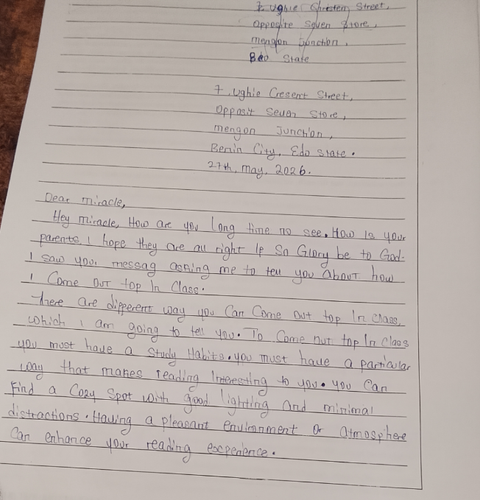 7, Ughie Cresten Street,
Opposite Seven Store,
mengon junction,
Edo State
7, Ughie Cresent Street,
Opposit Seven Store,
mengon Junction,
Benin City, Edo State.
27th, may, 2026.
Dear miracle,
Hey miracle, How are you long time no see. How is your
parents. I hope they are all right If So Glory be to God.
I saw your messag asking me to tell you About how
I Come out top In Class.
There are different way you Can Come out top In class,
which I am going to tell you. To Come out top In Class
you must have a study Habits. you must have a particular
way that makes reading Interesting to you. you Can
Find a Cozy Spot with good lighting And minimal
distractions. Having a pleasant environment or atmosphere
Can enhance your reading